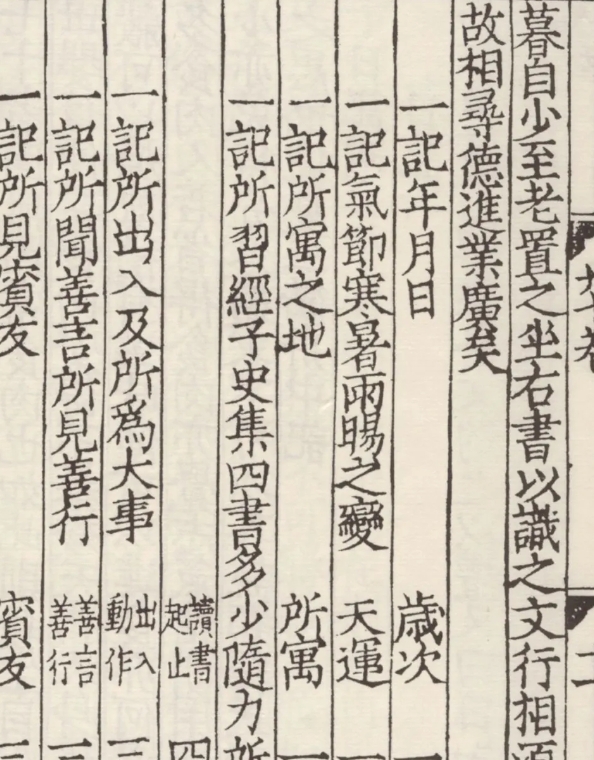 暮自少至老置之坐右書以識之文行相
故相尋德進業廣矣
一記年月日　歲次　一
一記氣節寒暑雨暘之變　天運
一記所寓之地　所寓　一
一記所習經子史集四書多少隨力所
讀書起止　四
一記所出入及所爲大事　出入動作　三
一記所聞善言所見善行　善言善行　三
一記所見賓友　賓友　三